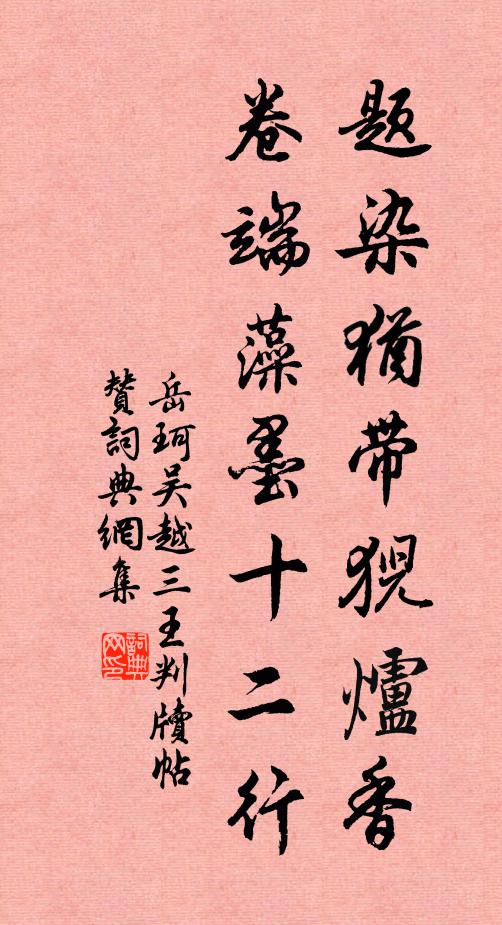 题染猶带猊爐香
卷端藻墨十二行
岳珂吴越三王判牘帖
賛詞典網集
詞典网印